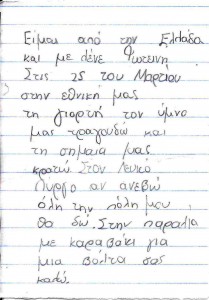 Είμαι από την Ελλάδα
και με λένε Φωτεινή
Στις 25 του Μαρτίου
στην εθνική μας
τη γιορτή τον ύμνο
μας τραγουδώ και
τη σημαία μας
κρατώ Στον Λευκό
Πύργο αν ανεβώ
όλη την πόλη μου
θα δώ. Στην παραλία
με καραβάκι για
μια βόλτα σας
καλώ.